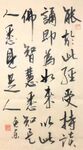 能於此經受持讀
誦則為如來以
佛智慧悉知是
人悉見是人